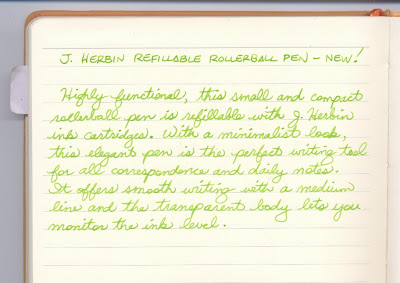 J. HERBIN REFILLABLE ROLLERBALL PEN – NEW!
Highly functional, this small and compact
rollerball pen is refillable with J. Herbin
ink cartridges. With a minimalist look,
this elegant pen is the perfect writing tool
for all correspondence and daily notes.
It offers smooth writing with a medium
line and the transparent body lets you
monitor the ink level.